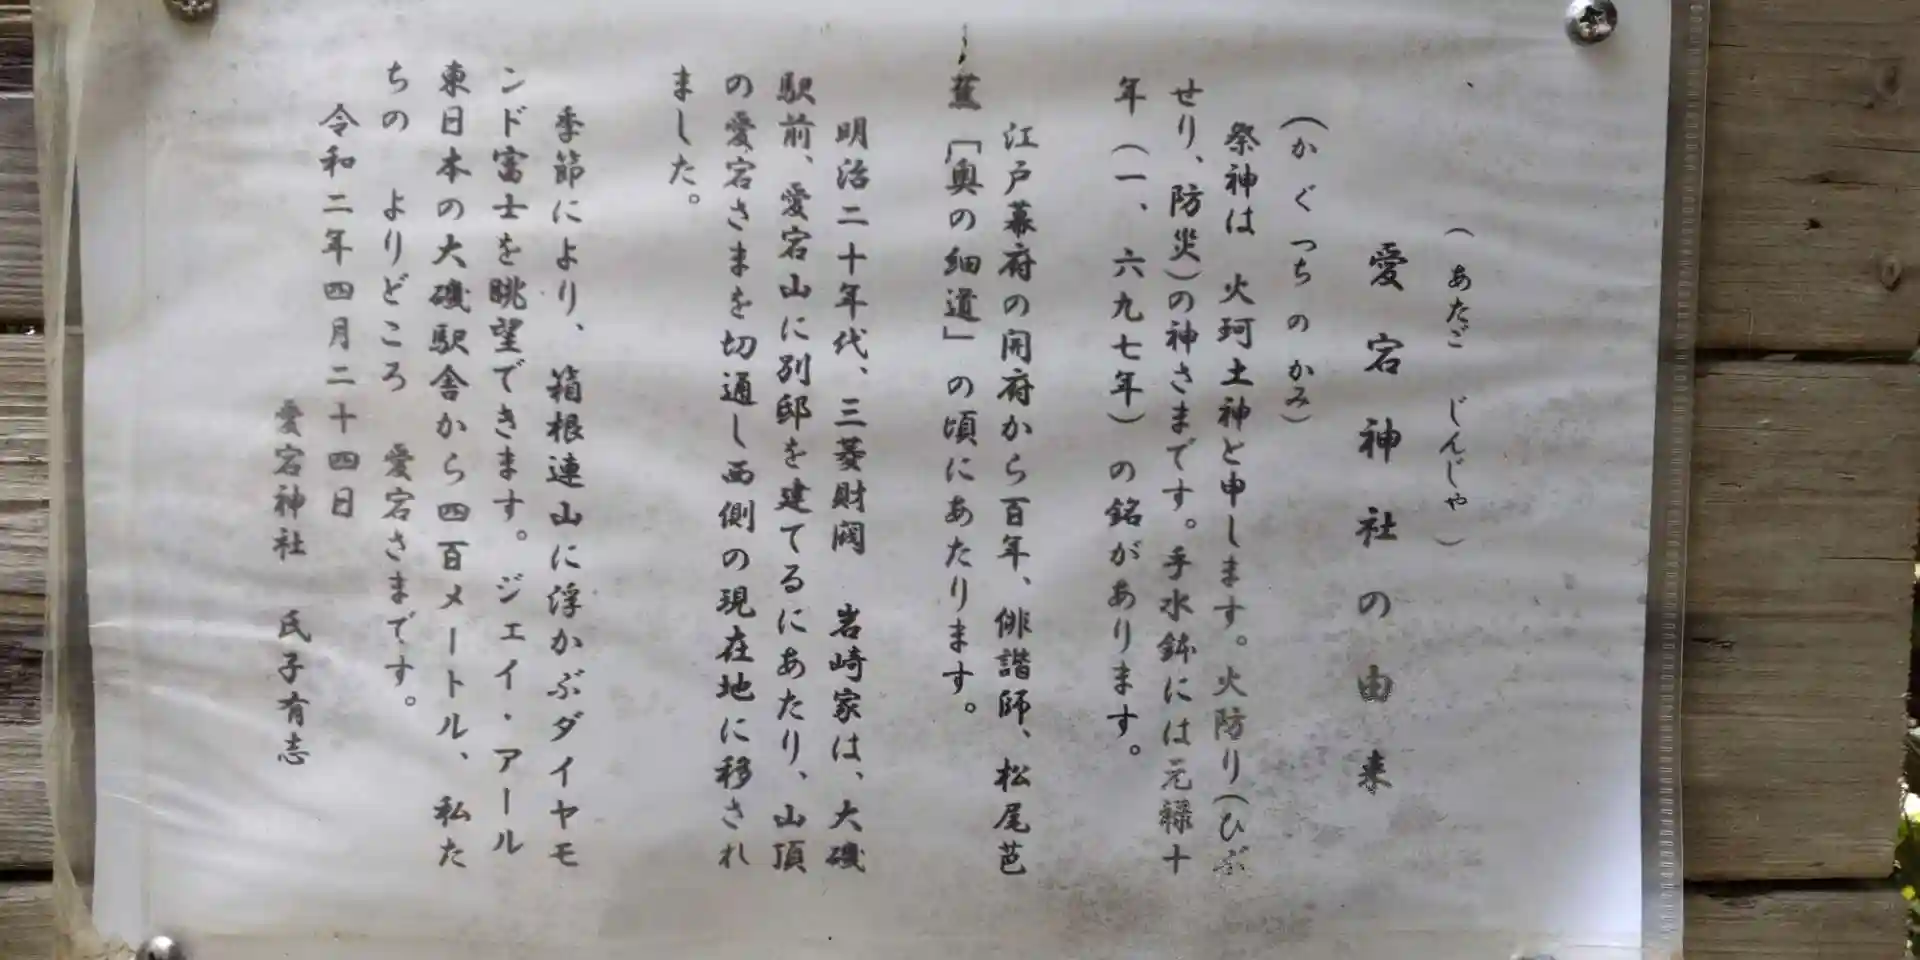 (あたご じんじゃ)
愛宕神社の由来
(かぐつちのかみ)
祭神は 火珂土神と申します。火防り(ひぶ
せり、防災)の神さまです。手水鉢には元禄十
年(一、六九七年)の銘があります。
江戸幕府の開府から百年、俳諧師、松尾芭
蕉「奥の細道」の頃にあたります。
明治二十年代、三菱財閥 岩崎家は、大磯
駅前、愛宕山に別邸を建てるにあたり、山頂
の愛宕さまを切通し西側の現在地に移され
ました。
季節により、箱根連山に浮かぶダイヤモ
ンド富士を眺望できます。ジェイ・アール
東日本の大磯駅舎から四百メートル、私た
ちの よりどころ 愛宕さまです。
令和二年四月二十四日
愛宕神社 氏子有志